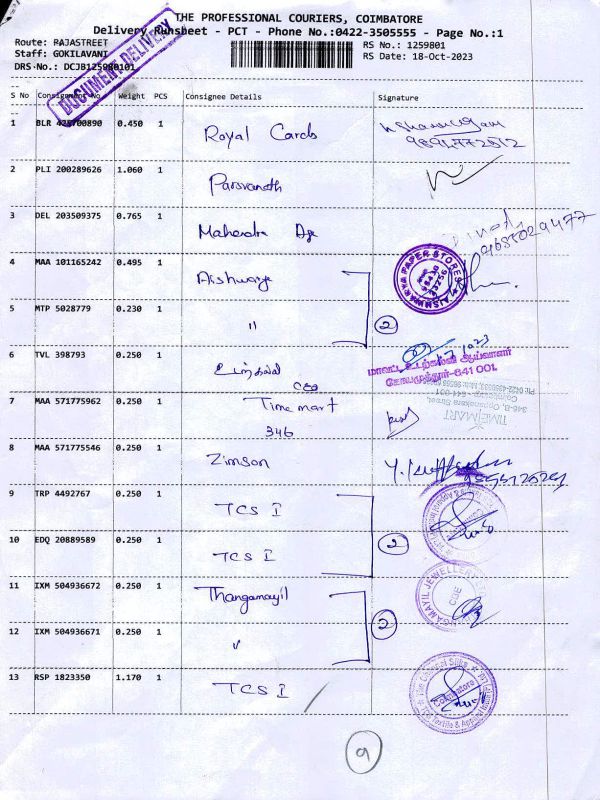 THE PROFESSIONAL COURIERS, COIMBATORE
Delivery Runsheet - PCT - Phone No.:0422-3505555 - Page No.:1
Route: RAJASTREET
RS No.: 1259801
Staff: GOKILAVANI
RS Date: 18-Oct-2023
DRS-No.: DCJB125980101
DOCUMENT DELIVERY
S No Consignment No. Weight PCS Consignee Details Signature
1 BLR 0.450 1 Royal Cards
2 PLI 200289626 1.060 1 Parsvanath
3 DEL 203509375 0.765 1 Mahendra
9685029477
4 MAA 101165242 0.495 1 Aishwarya
AISHWARYA PAPER STORES
5 MTP 5028779 0.230 1 "
2
6 TVL 398793 0.250 1
CEO
மாவட்ட உடற்கல்வி ஆய்வாளர்
கோயமுத்தூர்-641 001.
7 MAA 571775962 0.250 1 Time mart
346
TIME MART
346-B, Oppanakara Street,
Coimbatore - 641 001
8 MAA 571775546 0.250 1 Zimson
9 TRP 4492767 0.250 1 TCS I
2
10 EDQ 20889589 0.250 1 TCS I
11 IXM 504936672 0.250 1 Thangamayil
THANGAMAYIL JEWELLERY
CBE
2
12 IXM 504936671 0.250 1 "
13 RSP 1823350 1.170 1 TCS I
The Chennai Silks
Coimbatore
9